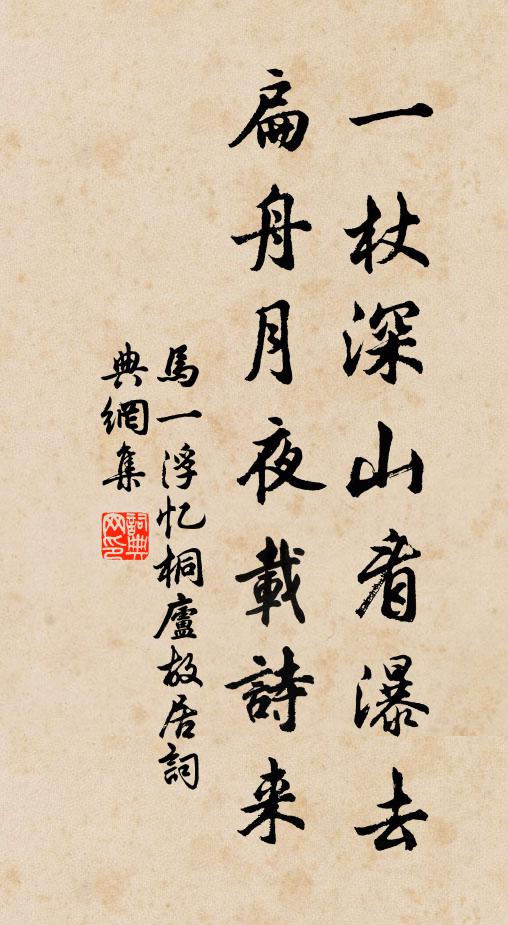 一杖深山看瀑去
扁舟月夜載詩来
馬一浮忆桐廬故居詞
典網集
詞典网印